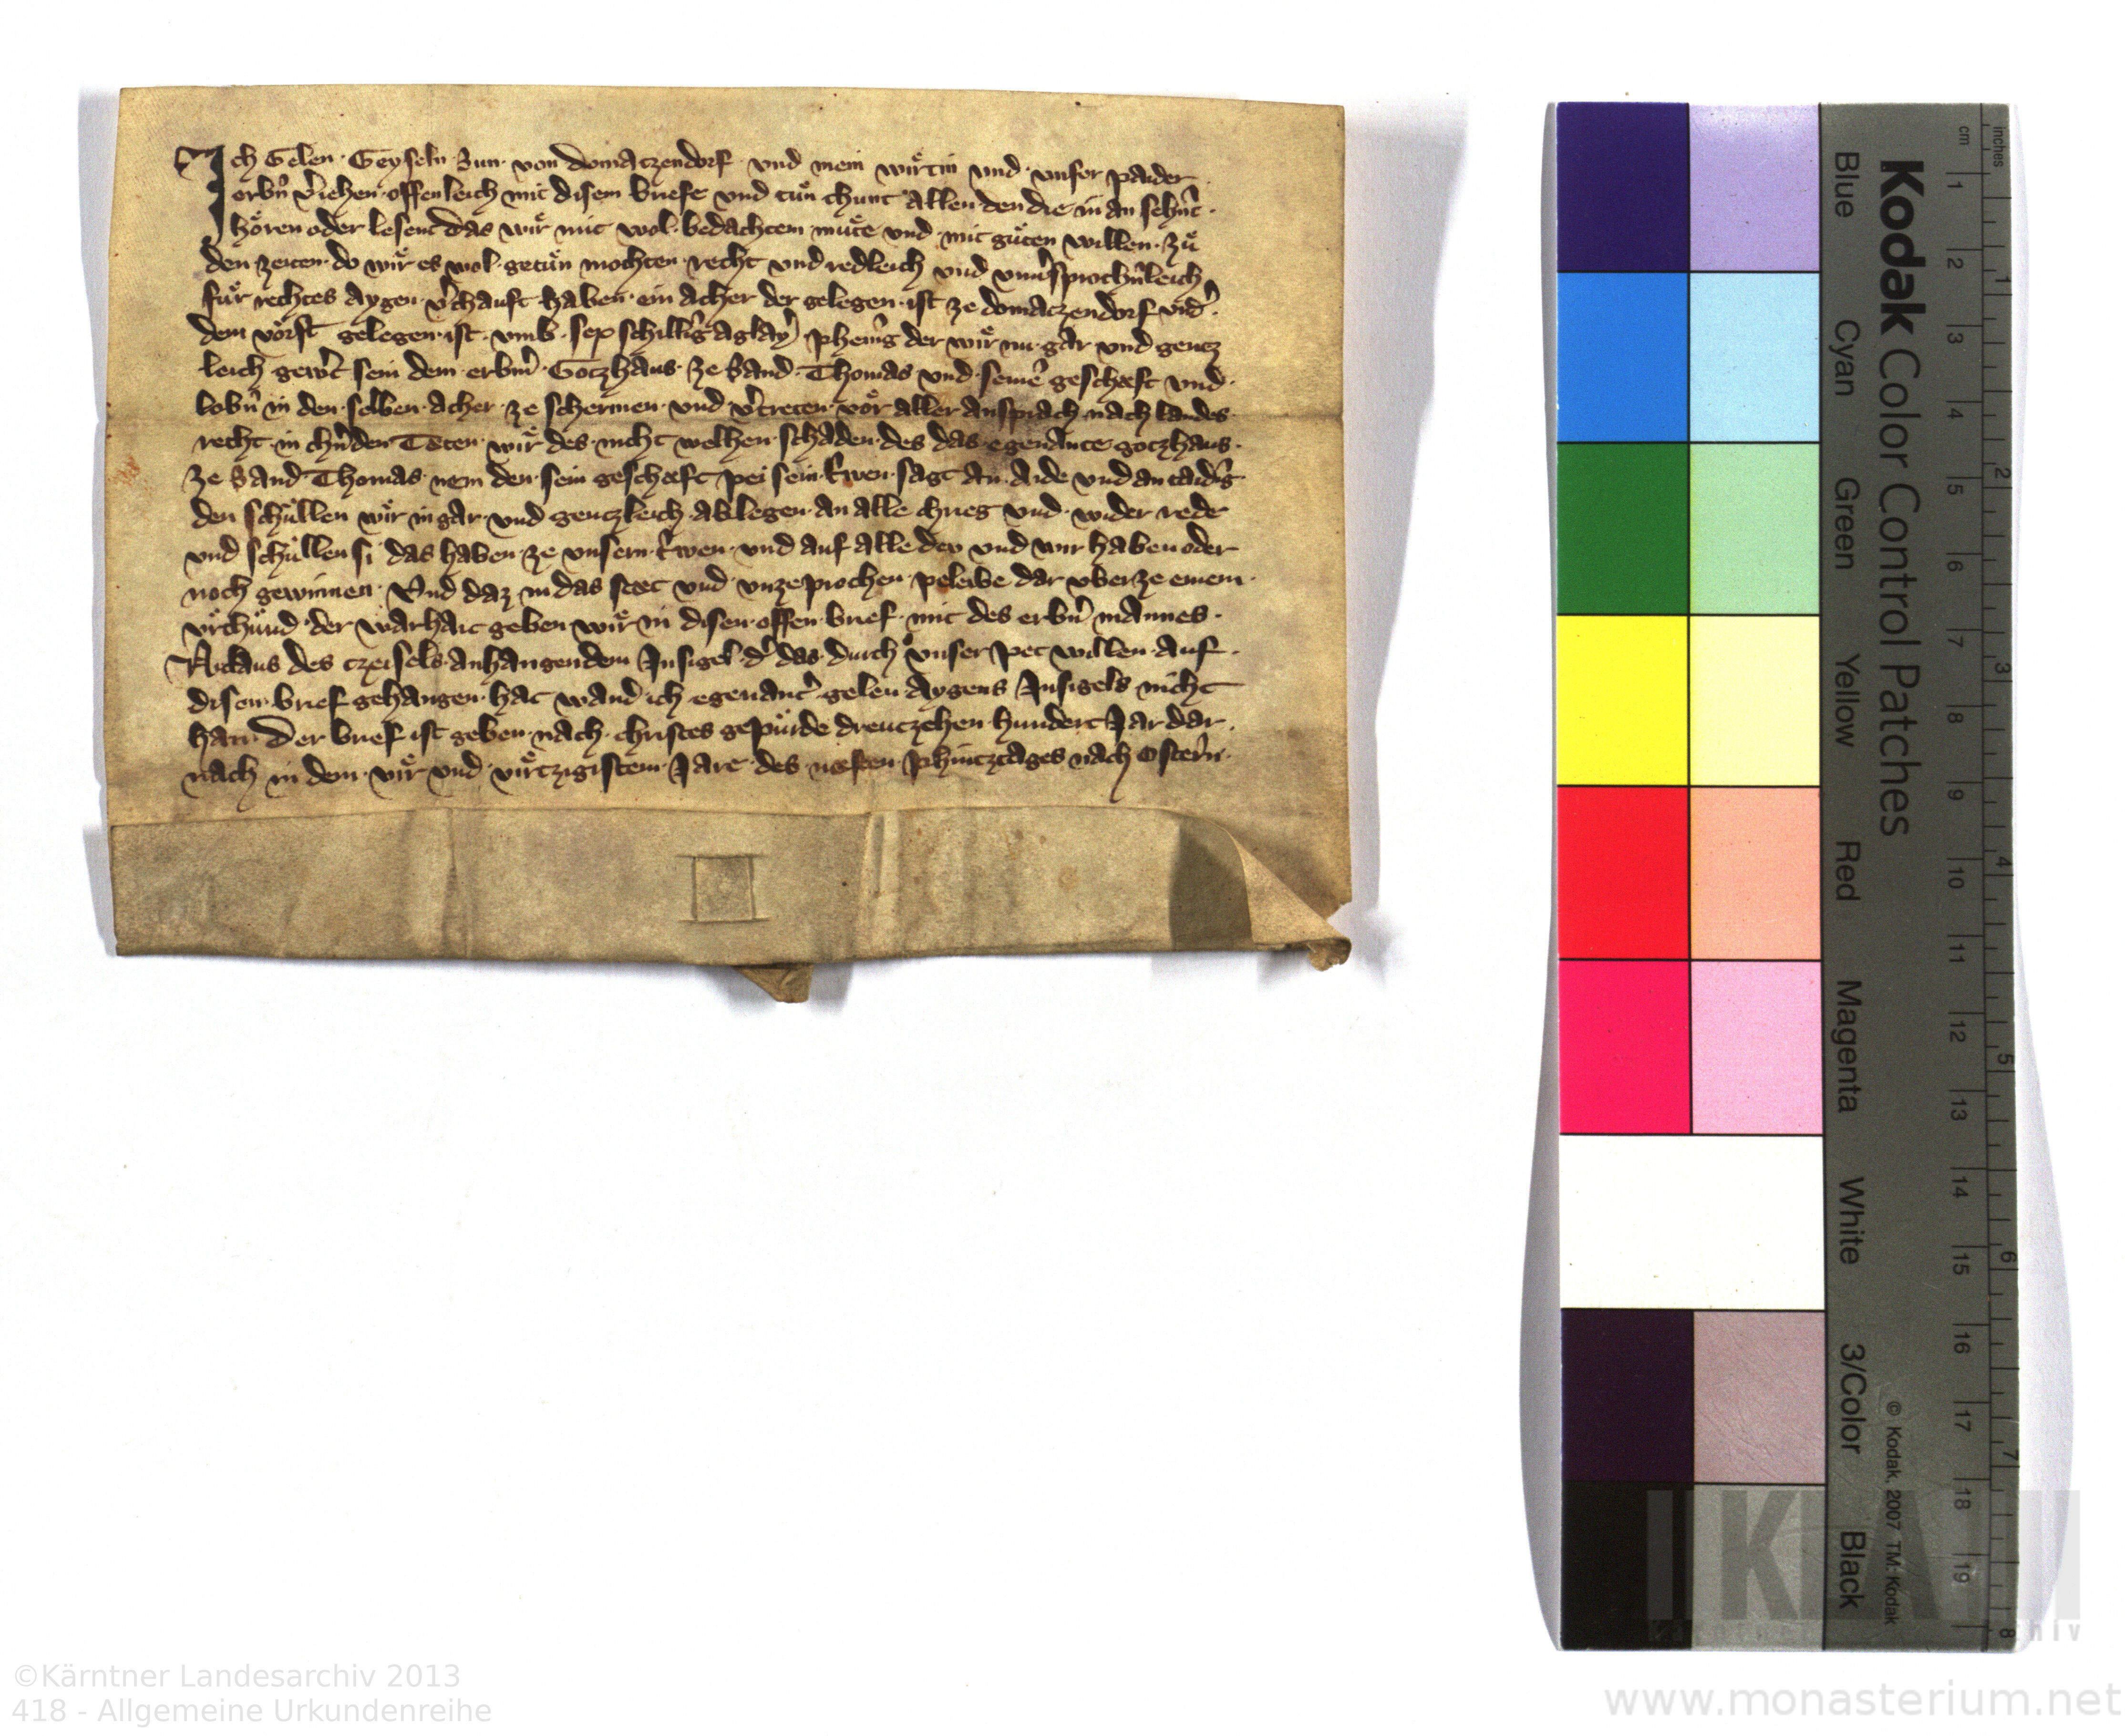 Ich Gelen · Geyseln · Sun · von domaczendorf · vnd mein wirͤtin vnd · vnser paider
erbn̄ v̓iehen · offenleich mit disem briefe vnd tuͤn chunt allen · den die in an sehn̄t ·
hoͤren oder lesent das wirͤ mit wol · bedachtem muͤte vnd · mit guͤten willen · zuͤ
den zeiten · do wirͤ es wol · getuͤn mochten · recht vnd redleich vnd vnu̓sprochn̄leich
fuͤr rechtes aygen · v̓chauft · haben · ein acher der gelegen · ist ze domaczendorf vnd̓ ·
dem voͤrst gelegen · ist · vmb · sex schilling̓ aglay̓ phenīg der wirͤ nu · gar vnd gentz
leich gew̓t sein dem · erbm̓ · Gotzhaus · ze Sand · Thomas vnd · seinē geschaeft vnd ·
lobn̄ in den · selben · acher · ze schermen · vnd · v̓treten · vor̈ aller ansprach · nach landes ·
recht · in chn̓den Teten · wirͤ des · nicht welhen · schaden · des das · egenante · gotzhaus ·
ze Sand · Thomas · nem den · sein geschaeft pei sein · t̓wen · sagt an · aide vnd an taidīg
den schuͤllen wirͤ in gar · vnd · gentzleich · ablegen · an alle chrieg vnd · wider rede
vnd schuͤllen si das haben · ze vnsern · t̓wen · vnd auf alle dev vnd wir haben oder
noch gewinnen · Vnd daz in das staet vnd · vnzeprochen · peleibe dar vber ze einem ·
vrͤchuͤnd der warhait geben wirͤ in disen · offen · brief · mit des erbn̄ mannes ·
Niclaus des czeisels · anhangendem Insigel · d̓ das · durch vnser pet willen · auf ·
disen · brief gehangen · hat wand ich egenant̓ gelen aygens Insigels nicht
han · Der brief ist geben · nach · christes gepuͤrde dreutzehen hundert Jar dar ·
nach in dem · virͤ vnd · virͤtzigistem · Jare · des naesten · phintztages nach Ostern̄ ·
Kodak Color Control Patches
Blue Cyan Green Yellow Red Magenta White 3/Color Black
© Kodak, 2007 TM: Kodak
cm 1 2 3 4 5 6 7 8 9 10 11 12 13 14 15 16 17 18 19
inches 1 2 3 4 5 6 7 8
KLA
©Kärntner Landesarchiv 2013
418 - Allgemeine Urkundenreihe
www.monasterium.net